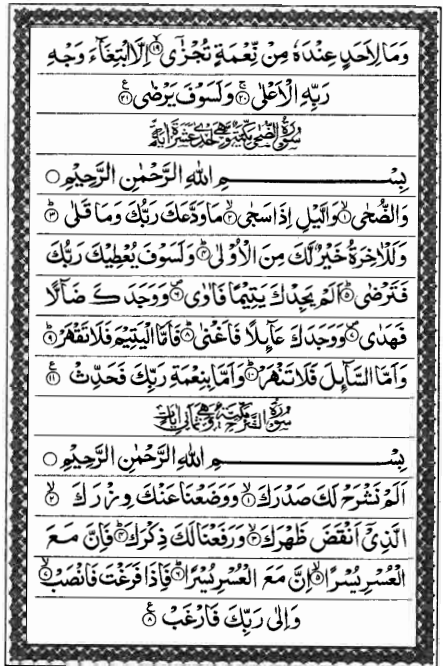 وَمَا لِاَحَدٍ عِنْدَهٗ مِنْ نِّعْمَةٍ تُجْزٰٓى ۙ﴿۱۹﴾ اِلَّا ابْتِغَآءَ وَجْهِ
رَبِّهِ الْاَعْلٰى ۚ﴿۲۰﴾ وَلَسَوْفَ يَرْضٰى ﴿۲۱﴾ ع
سُوْرَةُ الضُّحٰى مَكِّيَّةٌ وَّهِيَ اِحْدٰى عَشْرَةَ اٰيَةً
بِسْمِ اللهِ الرَّحْمٰنِ الرَّحِيْمِ ○
وَالضُّحٰى ۙ﴿۱﴾ وَالَّيْلِ اِذَا سَجٰى ۙ﴿۲﴾ مَا وَدَّعَكَ رَبُّكَ وَمَا قَلٰى ؕ﴿۳﴾
وَلَلْاٰخِرَةُ خَيْرٌ لَّكَ مِنَ الْاُوْلٰى ؕ﴿۴﴾ وَلَسَوْفَ يُعْطِيْكَ رَبُّكَ
فَتَرْضٰى ؕ﴿۵﴾ اَلَمْ يَجِدْكَ يَتِيْمًا فَاٰوٰى ۪﴿۶﴾ وَوَجَدَكَ ضَآلًّا
فَهَدٰى ۪﴿۷﴾ وَوَجَدَكَ عَآئِلًا فَاَغْنٰى ؕ﴿۸﴾ فَاَمَّا الْيَتِيْمَ فَلَا تَقْهَرْ ؕ﴿۹﴾
وَاَمَّا السَّآئِلَ فَلَا تَنْهَرْ ؕ﴿۱۰﴾ وَاَمَّا بِنِعْمَةِ رَبِّكَ فَحَدِّثْ ﴿۱۱﴾ ع
سُوْرَةُ اَلَمْ نَشْرَحْ مَكِّيَّةٌ وَّهِيَ ثَمَانِيْ اٰيَاتٍ
بِسْمِ اللهِ الرَّحْمٰنِ الرَّحِيْمِ ○
اَلَمْ نَشْرَحْ لَكَ صَدْرَكَ ۙ﴿۱﴾ وَوَضَعْنَا عَنْكَ وِزْرَكَ ۙ﴿۲﴾
الَّذِيْٓ اَنْقَضَ ظَهْرَكَ ۙ﴿۳﴾ وَرَفَعْنَا لَكَ ذِكْرَكَ ؕ﴿۴﴾ فَاِنَّ مَعَ
الْعُسْرِ يُسْرًا ۙ﴿۵﴾ اِنَّ مَعَ الْعُسْرِ يُسْرًا ؕ﴿۶﴾ فَاِذَا فَرَغْتَ فَانْصَبْ ۙ﴿۷﴾
وَاِلٰى رَبِّكَ فَارْغَبْ ﴿۸﴾ ع